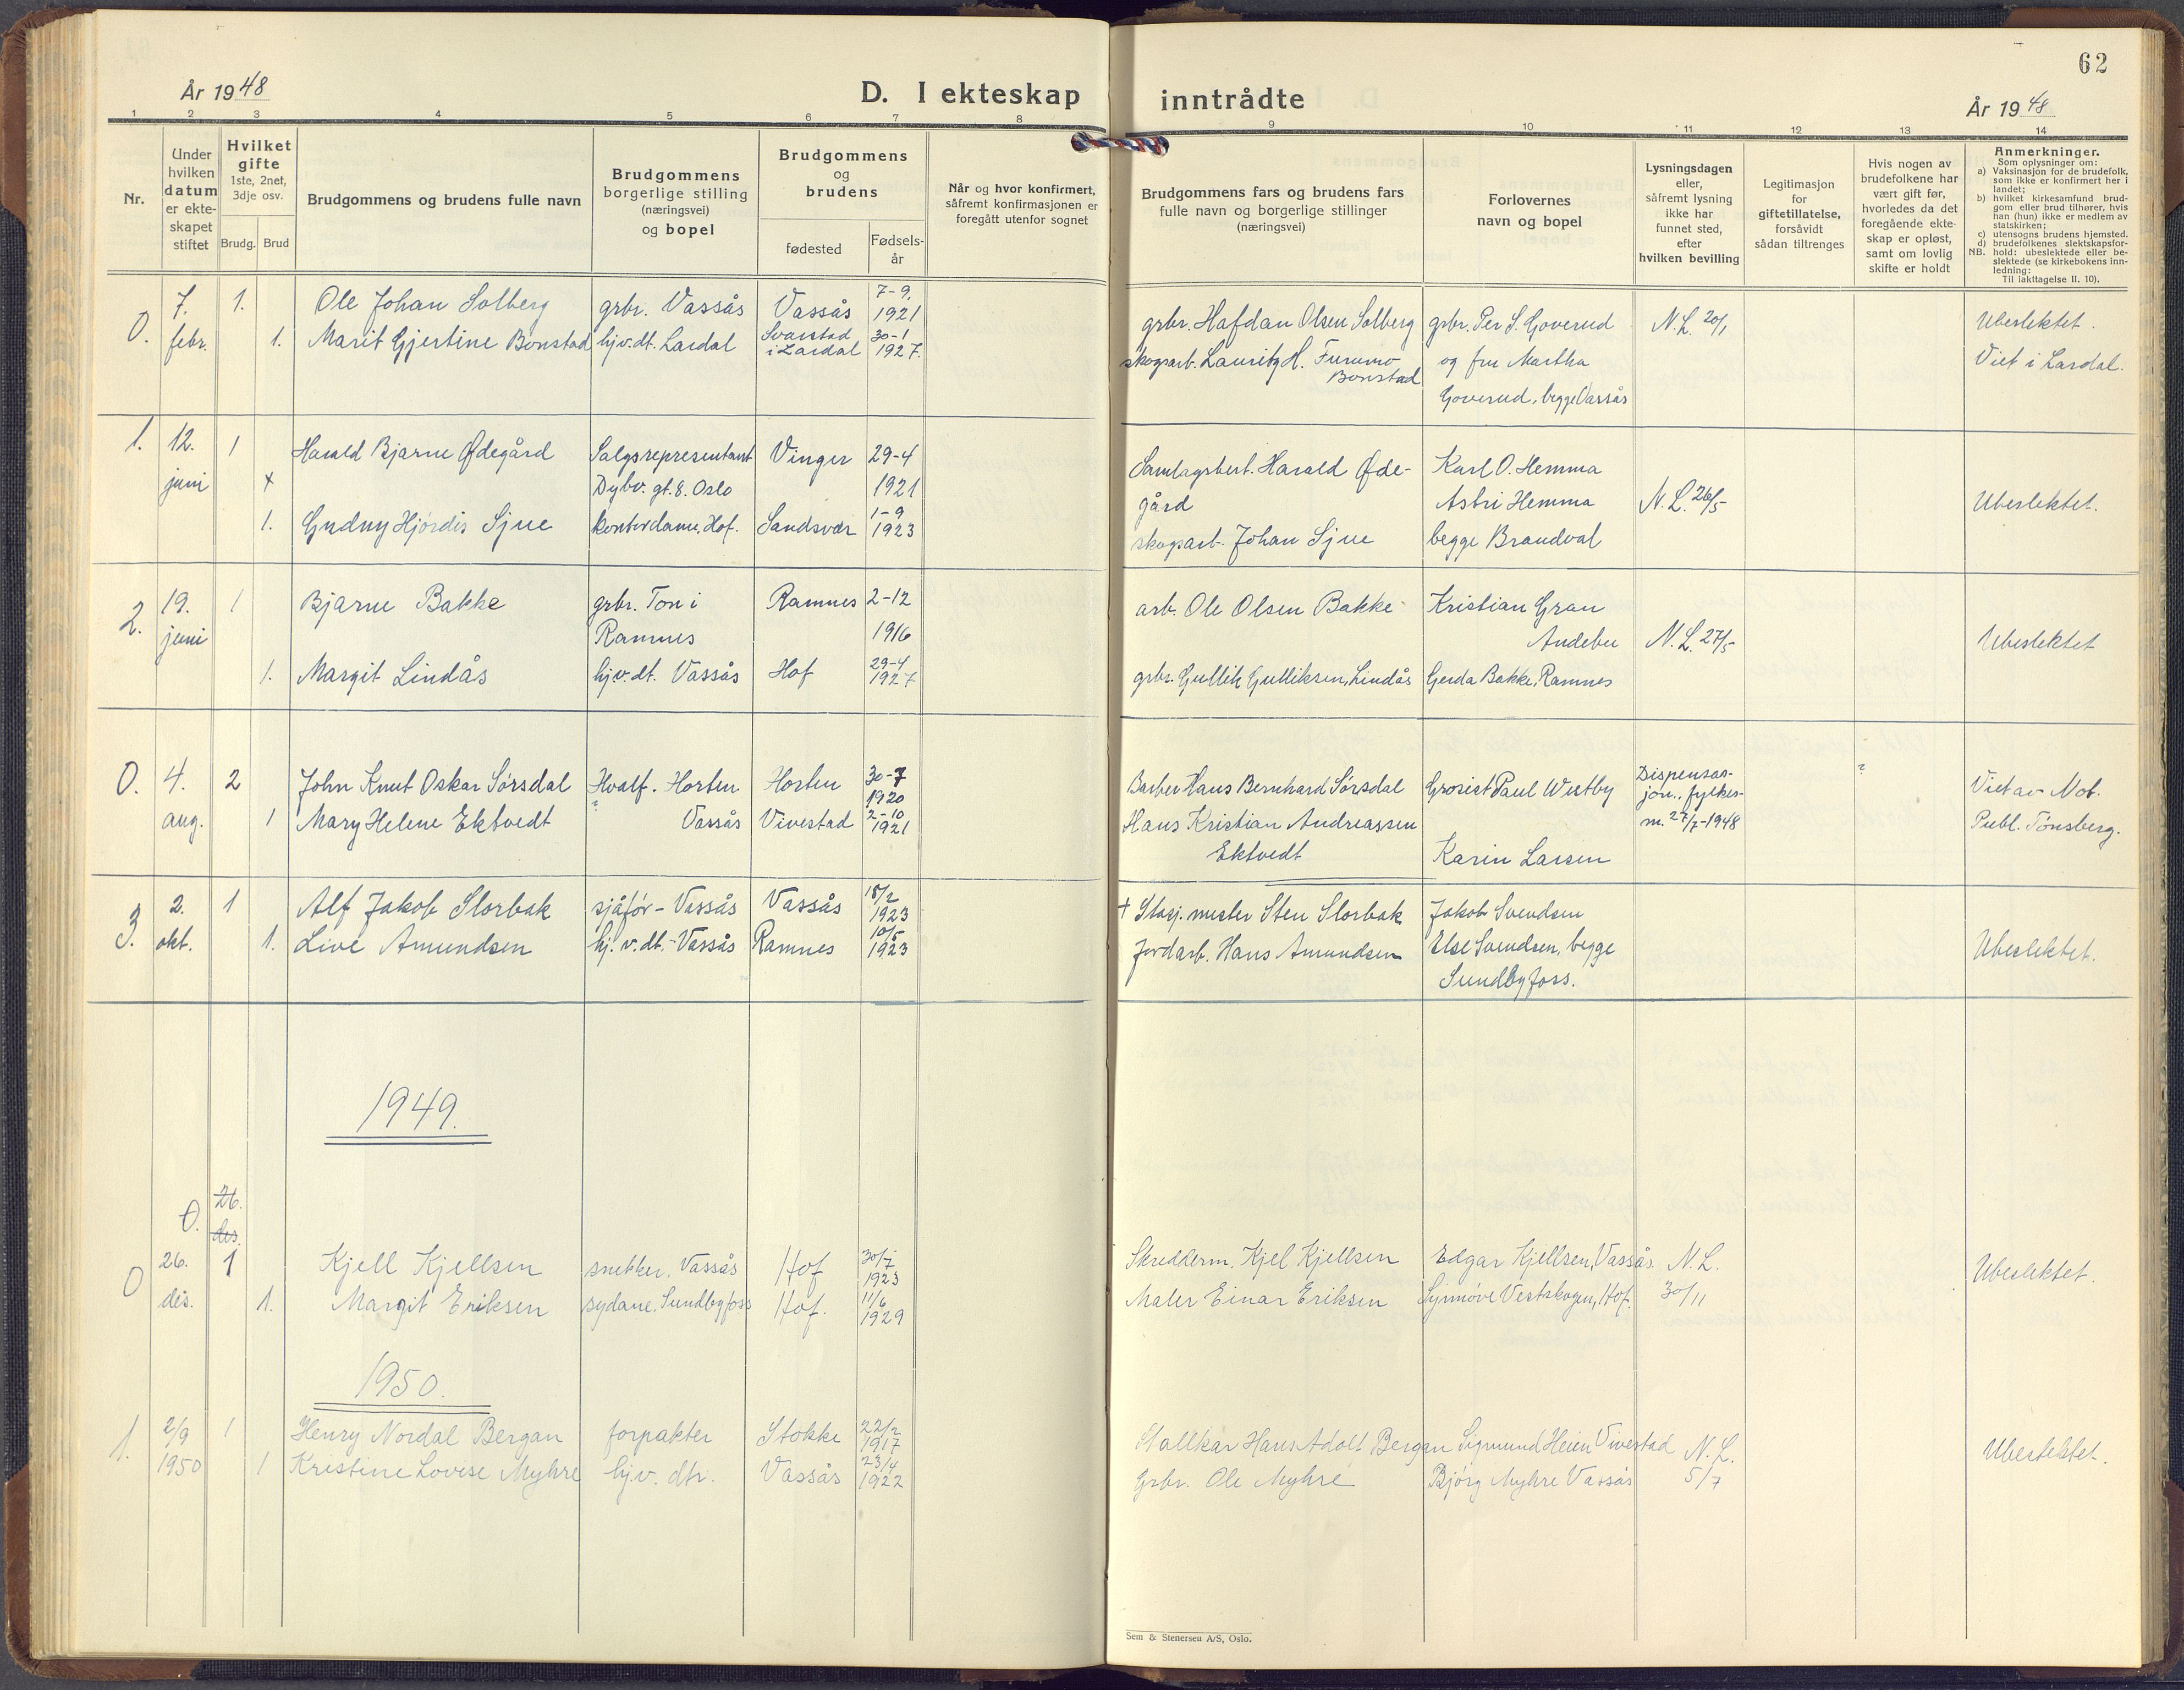 62
År 1948
D. I ekteskap inntrådte
År 1948
1 2 3 4 5 6 7 8 9 10 11 12 13 14
Nr.
Under
hvilken
datum
er ekte-
skapet
stiftet
Hvilket
gifte
1ste, 2net,
3dje osv.
Brudg. Brud
Brudgommens og brudens fulle navn
Brudgommens
borgerlige stilling
(næringsvei)
og bopel
Brudgommens
og
brudens
fødested
Fødsels-
år
Når og hvor konfirmert,
såfremt konfirmasjonen er
foregått utenfor sognet
Brudgommens fars og brudens fars
fulle navn og borgerlige stillinger
(næringsvei)
Forlovernes
navn og bopel
Lysningsdagen
eller,
såfremt lysning
ikke har
funnet sted,
efter
hvilken bevilling
Legitimasjon
for
giftetillatelse,
forsåvidt
sådan tiltrenges
Hvis nogen av
brudefolkene har
vært gift før,
hvorledes da det
foregående ekte-
skap er opløst,
samt om lovlig
skifte er holdt
Anmerkninger.
Som oplysninger om:
a) Vaksinasjon for de brudefolk,
som ikke er konfirmert her i
landet;
b) hvilket kirkesamfund brud-
gom eller brud tilhører, hvis
han (hun) ikke er medlem av
statskirken;
c) utensogns brudens hjemsted.
d) brudefolkenes slektskapsfor-
NB. hold: ubeslektede eller be-
slektede (se kirkebokens inn-
ledning:
Til iakttagelse II. 10).
0. 7. febr. 1. Ole Johan Solberg grbr. Vassås Vassås 7-9. 1921
1. Marit Gjertine Bonstad hjv.dt. Lardal Svarstad i Lardal 30-1 1927.
grbr. Hafdan Olsen Solberg
skogsarb. Lauritz H. Furumo
Bonstad
grbr. Per S. Goverud
og fru Martha
Goverud, begge Vassås
N.L. 20/1
Ubeslektet.
Viet i Lardal.
1. 12. juni 1 Harald Bjarne Ødegård Salgsrepresentant Dybv. gt. 8. Oslo Vinger 29-4 1921
x
1. Gudny Hjørdis Sjue kontordame, Hof. Sandsvær 1-9 1923
Samlagsbest. Harald Øde-
gård
skogsarb. Johan Sjue
Karl O. Hemma
Astri Hemma
begge Brandval
N.L. 26/5
Ubeslektet.
2. 19. juni 1 Bjarne Bakke grbr. Ton i Ramnes Ramnes 2-12 1916
1. Margit Lindås hjv.dt. Vassås Hof 29-4 1927
arb. Ole Olsen Bakke
grbr. Gullik Gulliksen, Lindås
Kristian Gran
Andebu
Gerda Bakke, Ramnes
N.L. 27/5
Ubeslektet
0. 4. aug. 2 John Knut Oskar Sørsdal Hvalf. Horten Horten 30-7 1920
1 Mary Helene Ektvedt ? Vassås Vivestad 2-10 1921
Barber Hans Bernhard Sørsdal
Hans Kristian Andreassen
Ektvedt
Grosist Paul Westby
Karin Larsen
Dispensas-
jon., fylkes-
m. 27/7-1948
?
Viet av Not.
Publ. Tønsberg.
3. 2. okt. 1 Alf Jakob Slorbak sjåfør - Vassås Vassås 18/2 1923
1. Live Amundsen hj.v.dt. - Vassås Ramnes 10/5 1923
+ Stasj. mester Sten Slorbak
Jordarb. Hans Amundsen
Jakob Svendsen
Else Svendsen, begge
Sundbyfoss.
Ubeslektet.
1949.
0. 26. des.
0 26. des. 1 Kjell Kjellsen snekker, Vassås Hof 30/7 1923
1. Margit Eriksen sydame, Sundbyfoss Hof. 11/6 1929
Skredderm. Kjel Kjellsen
Maler Einar Eriksen
Edgar Kjellsen, Vassås.
Synnøve Vestskogen, Hof.
N.L.
30/11
Ubeslektet.
1950.
1. 2/9 1950 1 Henry Nordal Bergan forpakter Stokke 22/2 1917
1 Kristine Lovise Myhre hj.v. dtr. Vassås 23/4 1922
Stallkar Hans Adolt Bergan
Grbr. Ole Myhre
Sigmund Heien Vivestad
Bjørg Myhre Vassås
N.L.
5/7
Ubeslektet.
Sem & Stenersen A/S, Oslo.